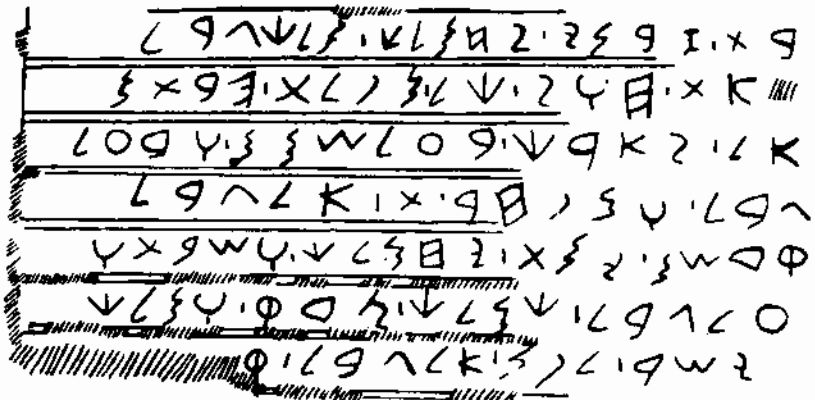 𐤁𐤕.𐤆𐤁𐤍𐤉.𐤉𐤇𐤌𐤋𐤊.𐤌𐤋𐤊𐤂𐤁𐤋
𐤀𐤕.𐤇𐤅𐤉.𐤊𐤋.𐤌𐤐𐤋𐤕.𐤄𐤁𐤕𐤌
𐤀𐤋.𐤉𐤀𐤓𐤊.𐤁𐤏𐤋𐤔𐤌𐤌.𐤅𐤁𐤏𐤋
𐤂𐤁𐤋.𐤅𐤌𐤐𐤇𐤓.𐤕.𐤀𐤋𐤂𐤁𐤋
𐤒𐤃𐤔𐤌.𐤉𐤌𐤕.𐤉𐤇𐤌𐤋𐤊.𐤅𐤔𐤍𐤕𐤅
𐤏𐤋𐤂𐤁𐤋.𐤊𐤌𐤋𐤊.𐤑𐤃𐤒.𐤅𐤌𐤋𐤊
𐤉𐤔𐤓.𐤋𐤐𐤍.𐤀𐤋𐤂𐤁𐤋.𐤒